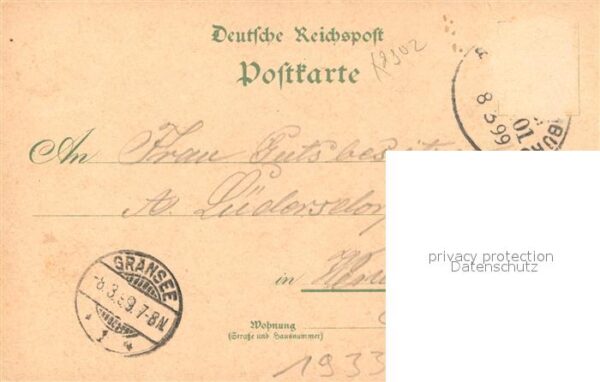 Deutsche Reichspost
Postkarte
An Frau Gutsbesit
A. Lüdersdorf
in
Wohnung
(Straße und Hausnummer)
GRANSEE
8.3.99.7-8N.
1
8 3 99
10
BURG
1933
privacy protection
Datenschutz